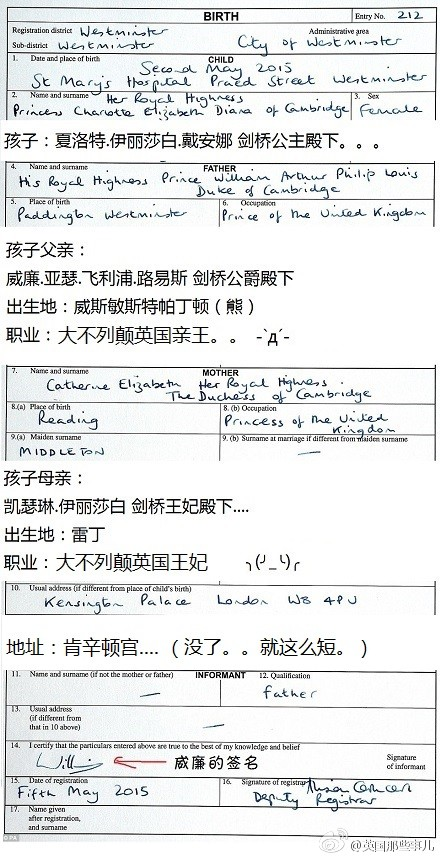 BIRTH
Entry No. 212
Registration district Westminster
Administrative area
Sub-district Westminster
City of Westminster
1. Date and place of birth
CHILD
Second May 2015
St Mary's Hospital Praed Street Westminster
2. Name and surname
3. Sex
Her Royal Highness
Princess Charlotte Elizabeth Diana of Cambridge
Female
孩子：夏洛特.伊丽莎白.戴安娜 剑桥公主殿下。。。
4. Name and surname
FATHER
His Royal Highness Prince William Arthur Philip Louis
Duke of Cambridge
5. Place of birth
6. Occupation
Paddington Westminster
Prince of the United Kingdom
孩子父亲：
威廉.亚瑟.飞利浦.路易斯 剑桥公爵殿下
出生地：威斯敏斯特帕丁顿（熊）
职业：大不列颠英国亲王。。 -`д´-
7. Name and surname
MOTHER
Catherine Elizabeth Her Royal Highness
The Duchess of Cambridge
8.(a) Place of birth
8. (b) Occupation
Reading
Princess of the United
Kingdom
9.(a) Maiden surname
9. (b) Surname at marriage if different from maiden surname
MIDDLETON
—
孩子母亲：
凯瑟琳.伊丽莎白 剑桥王妃殿下....
出生地：雷丁
职业：大不列颠英国王妃 ╮(╯_╰)╭
10. Usual address (if different from place of child's birth)
Kensington Palace London W8 4PU
地址：肯辛顿宫....（没了。。就这么短。）
11. Name and surname (if not the mother or father)
INFORMANT
12. Qualification
—
Father
13. Usual address
(if different from
that in 10 above)
—
14. I certify that the particulars entered above are true to the best of my knowledge and belief
威廉的签名
Signature
of informant
15. Date of registration
16. Signature of registrar
Fifth May 2015
Deputy Registrar
17. Name given
after registration,
and surname
@英国那些事儿